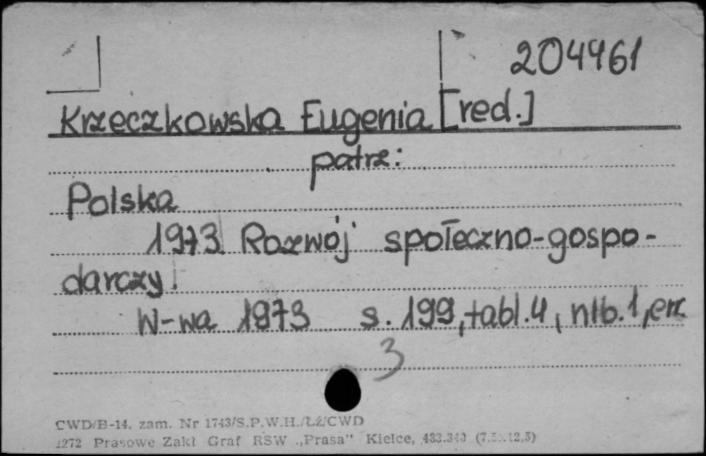 204461
Krzeczkowska Eugenia [red.]
patrz:
Polska
1973 Rozwój społeczno-gospo-
darczy!
W-wa 1973 s. 199, tabl. 4, nlb. 1, err.
3
CWD/B-14. zam. Nr 1743/S.P.W.H./ŁŻ/CWD
1272 Prasowe Zakł Graf RSW „Prasa" Kielce,